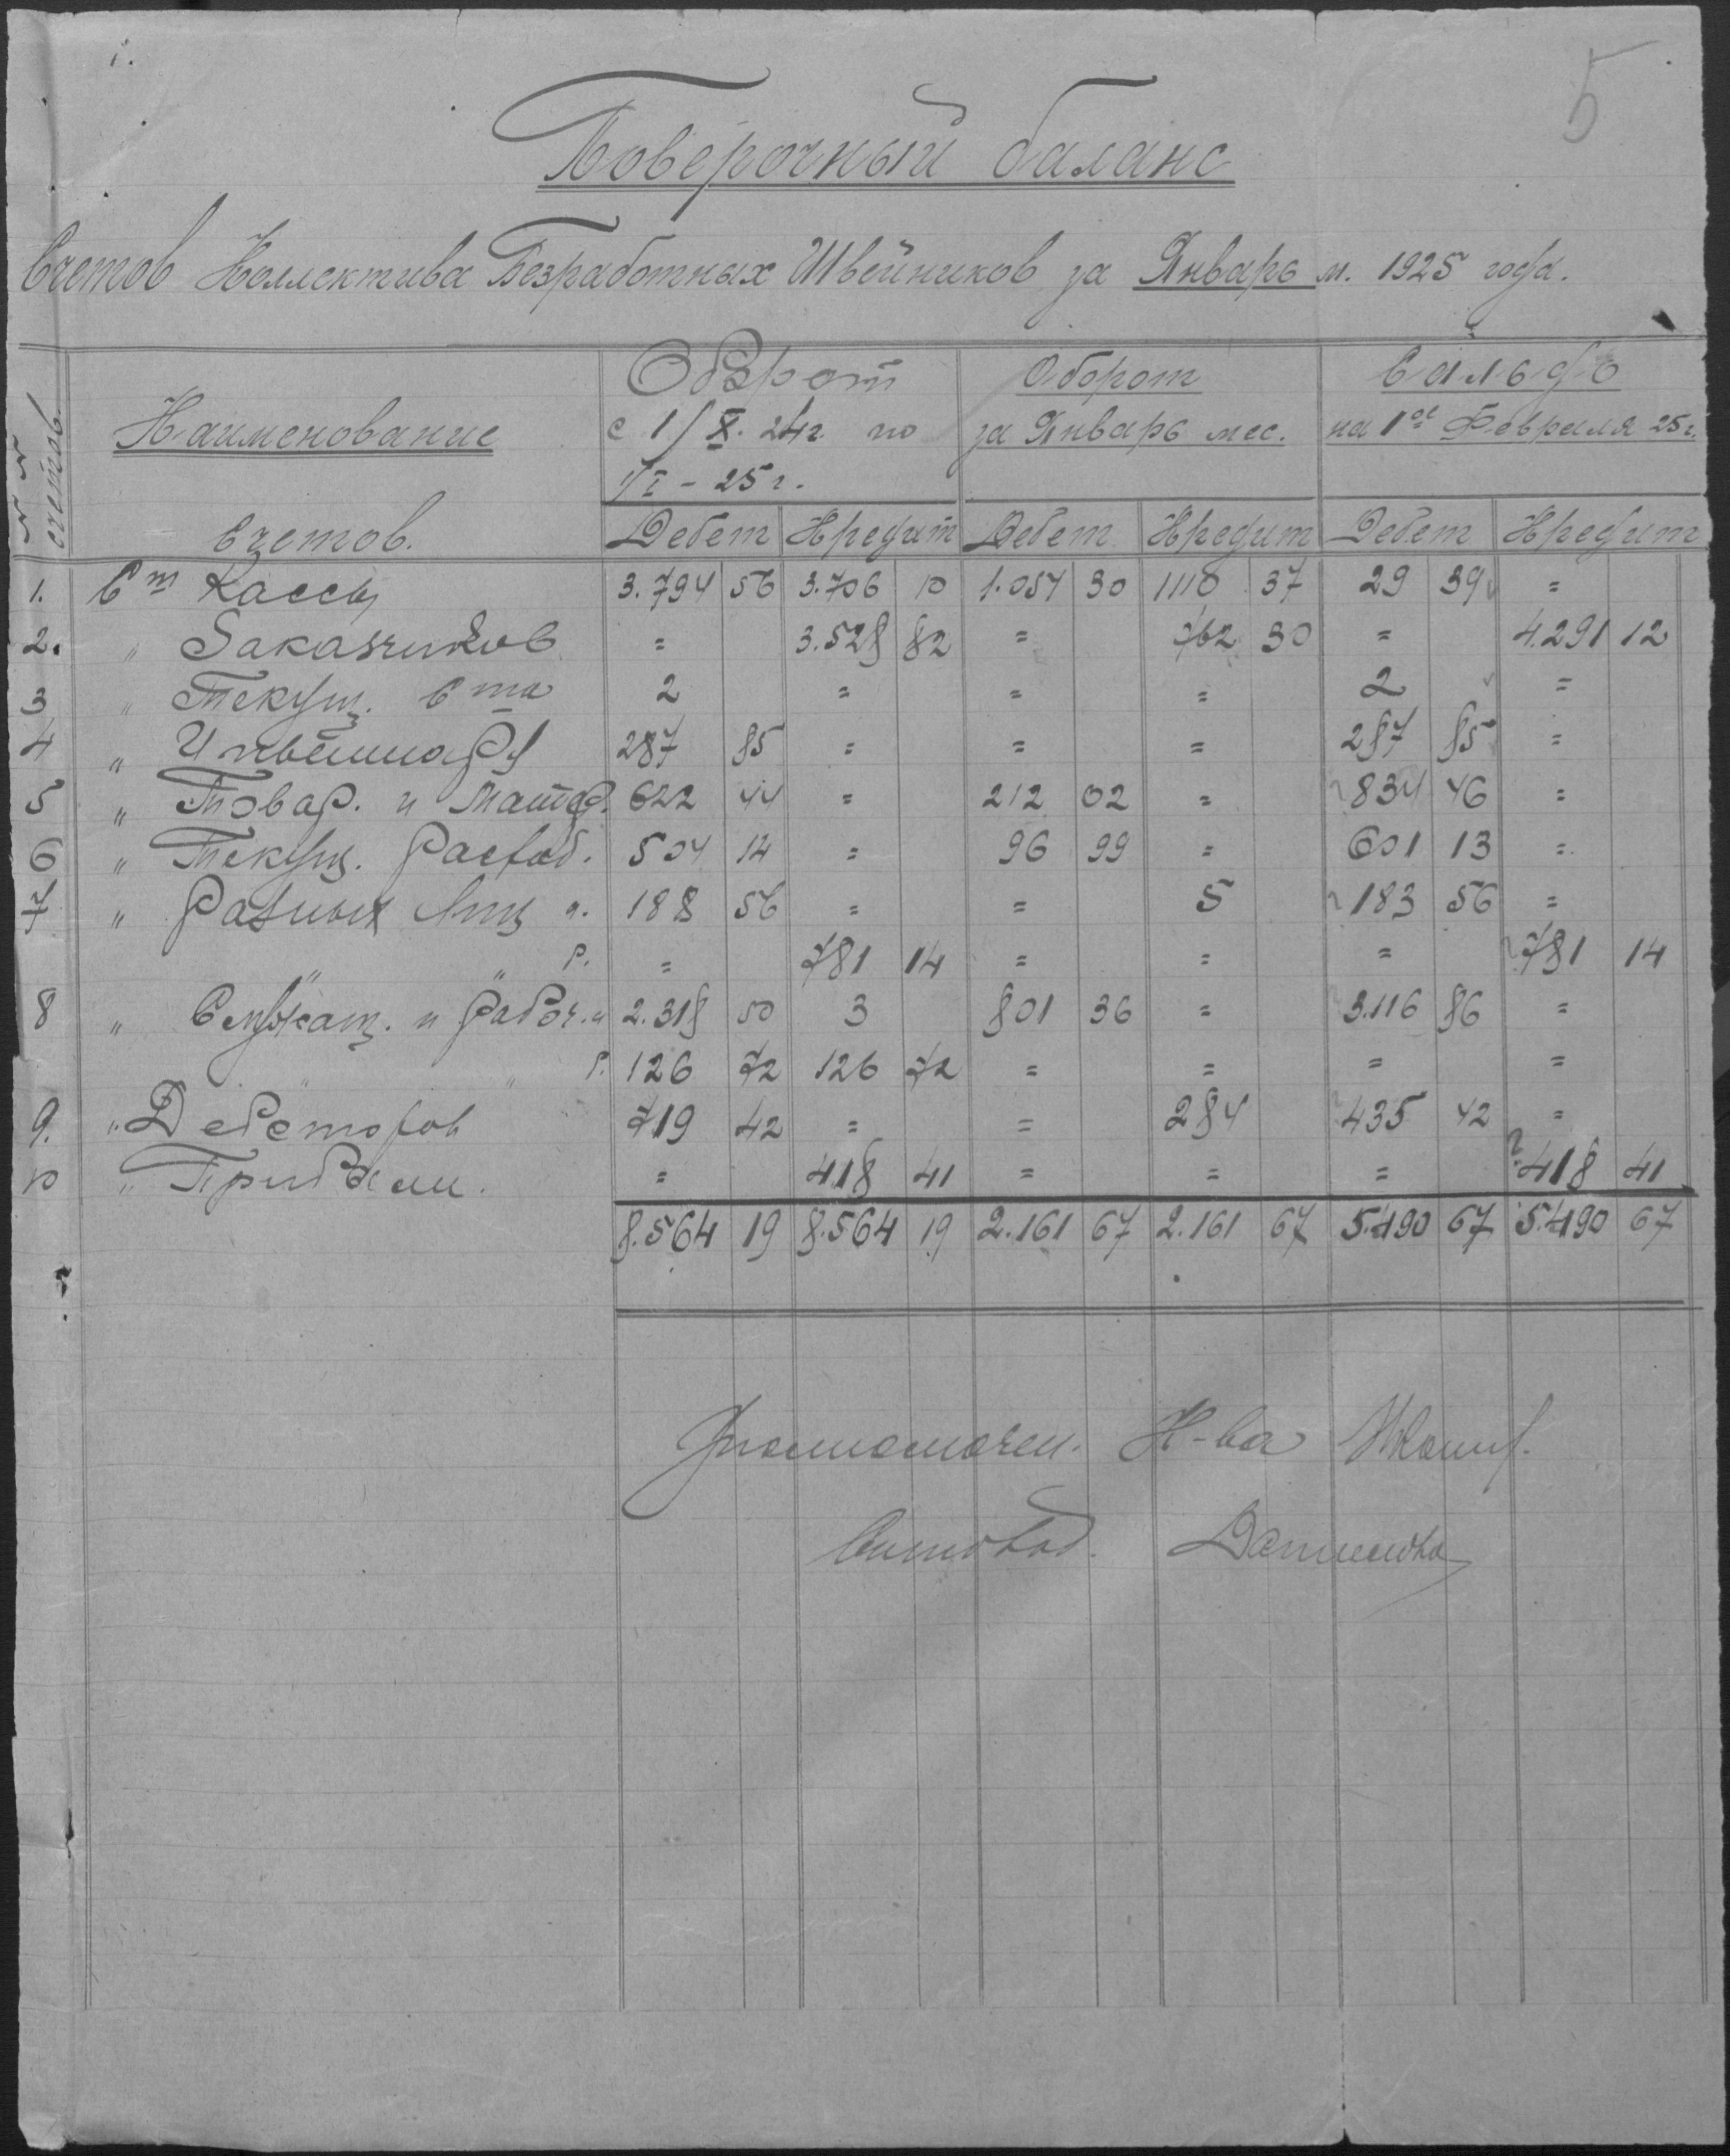 5
Поверочный баланс
Счетов Коллектива Безработных Швейников за Январь м. 1925 года.
№ № счетов.
Наименование счетов.
Оборот с 1/X. 24г. по 1/I - 25 г.
Оборот за Январь мес.
Сальдо на 1ое Февраля 25 г.
Дебет Кредит Дебет Кредит Дебет Кредит
1. Ст Кассы 3.794 56 3.706 10 1.051 30 1110 37 29 39 =
2. " Заказчиков = 3.528 82 = 762 30 = 4.291 12
3 " Текущ. Ста 2 = = = 2 =
4 " Инвентаря 287 85 = = = 287 85 =
5 " Товар. и Матер. 622 44 = 212 02 = 834 46 =
6 " Текущ. Расход. 504 14 = 96 99 = 601 13 =
7 " Разных Лиц а. 188 56 = = 5 183 56 =
" " р. = 781 14 = = = 781 14
8 " Служащ. и рабоч. а 2.318 50 3 801 36 = 3.116 86 =
" " р. 126 72 126 72 = = = =
9. " Дебеторов 719 42 = = 284 435 42 =
10 " Прибыли. = 418 41 = = = 418 41
8.564 19 8.564 19 2.161 67 2.161 67 5.490 67 5.490 67
Уполномочен. К-ва
Счетовод.